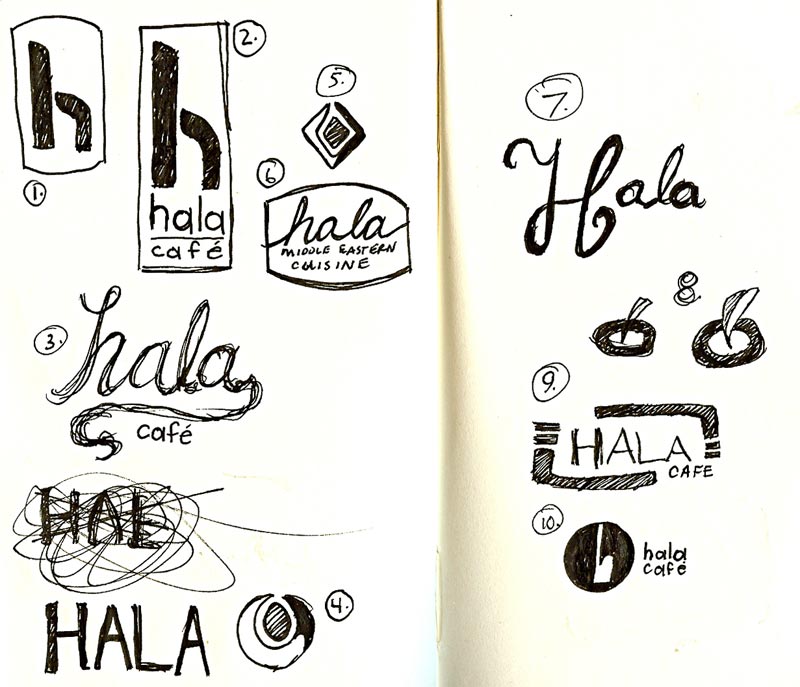 1.
h
2.
h
hala
café
5.
6
hala
MIDDLE EASTERN
CUISINE
3.
hala
café
HAL
HALA
4.
7.
Hala
8
9.
HALA
CAFE
10.
h
hala
café